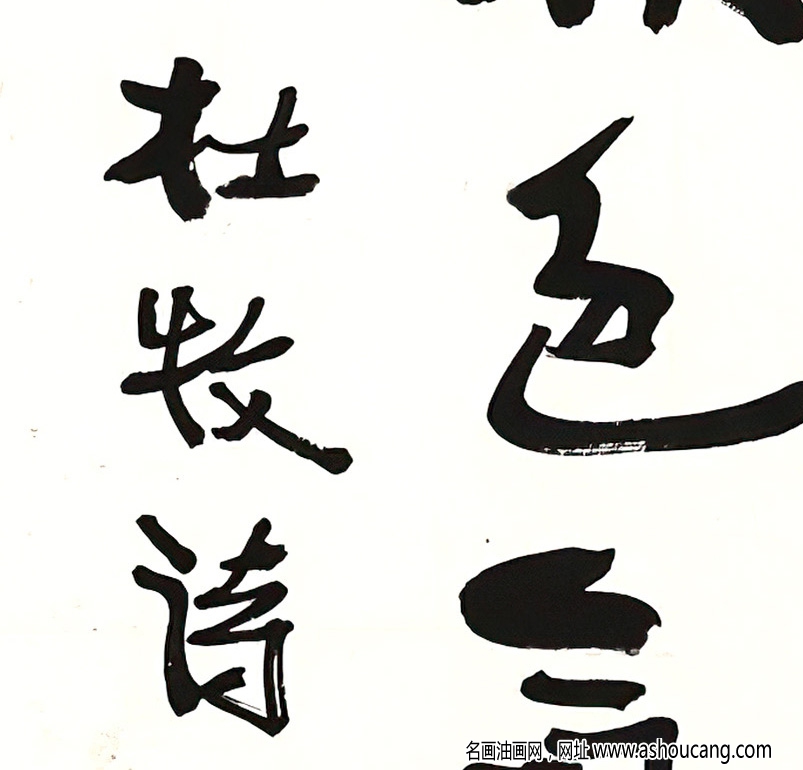 色
杜牧诗
名画油画网，网址 www.ashoucang.com